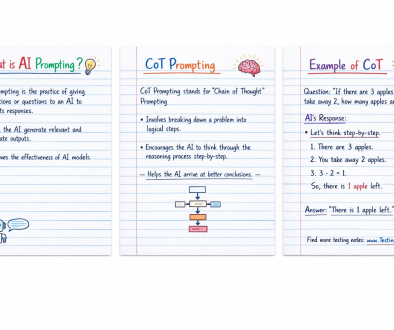 t is AI Prompting?
mpting is the practice of giving
tions or questions to an AI to
ts responses.
the AI generate relevant and
ate outputs.
ves the effectiveness of AI models.
CoT Prompting
CoT Prompting stands for "Chain of Thought"
Prompting
• Involves breaking down a problem into
logical steps.
• Encourages the AI to think through the
reasoning process step-by-step.
— Helps the AI arrive at better conclusions. —
Example of CoT
Question: "If there are 3 apples
take away 2, how many apples a
AI's Response:
• Let's think step-by-step.
1. There are 3 apples.
2. You take away 2 apples.
3. 3 - 2 = 1.
So, there is 1 apple left.
Answer: "There is 1 apple left."
Find more testing notes: www.Testin